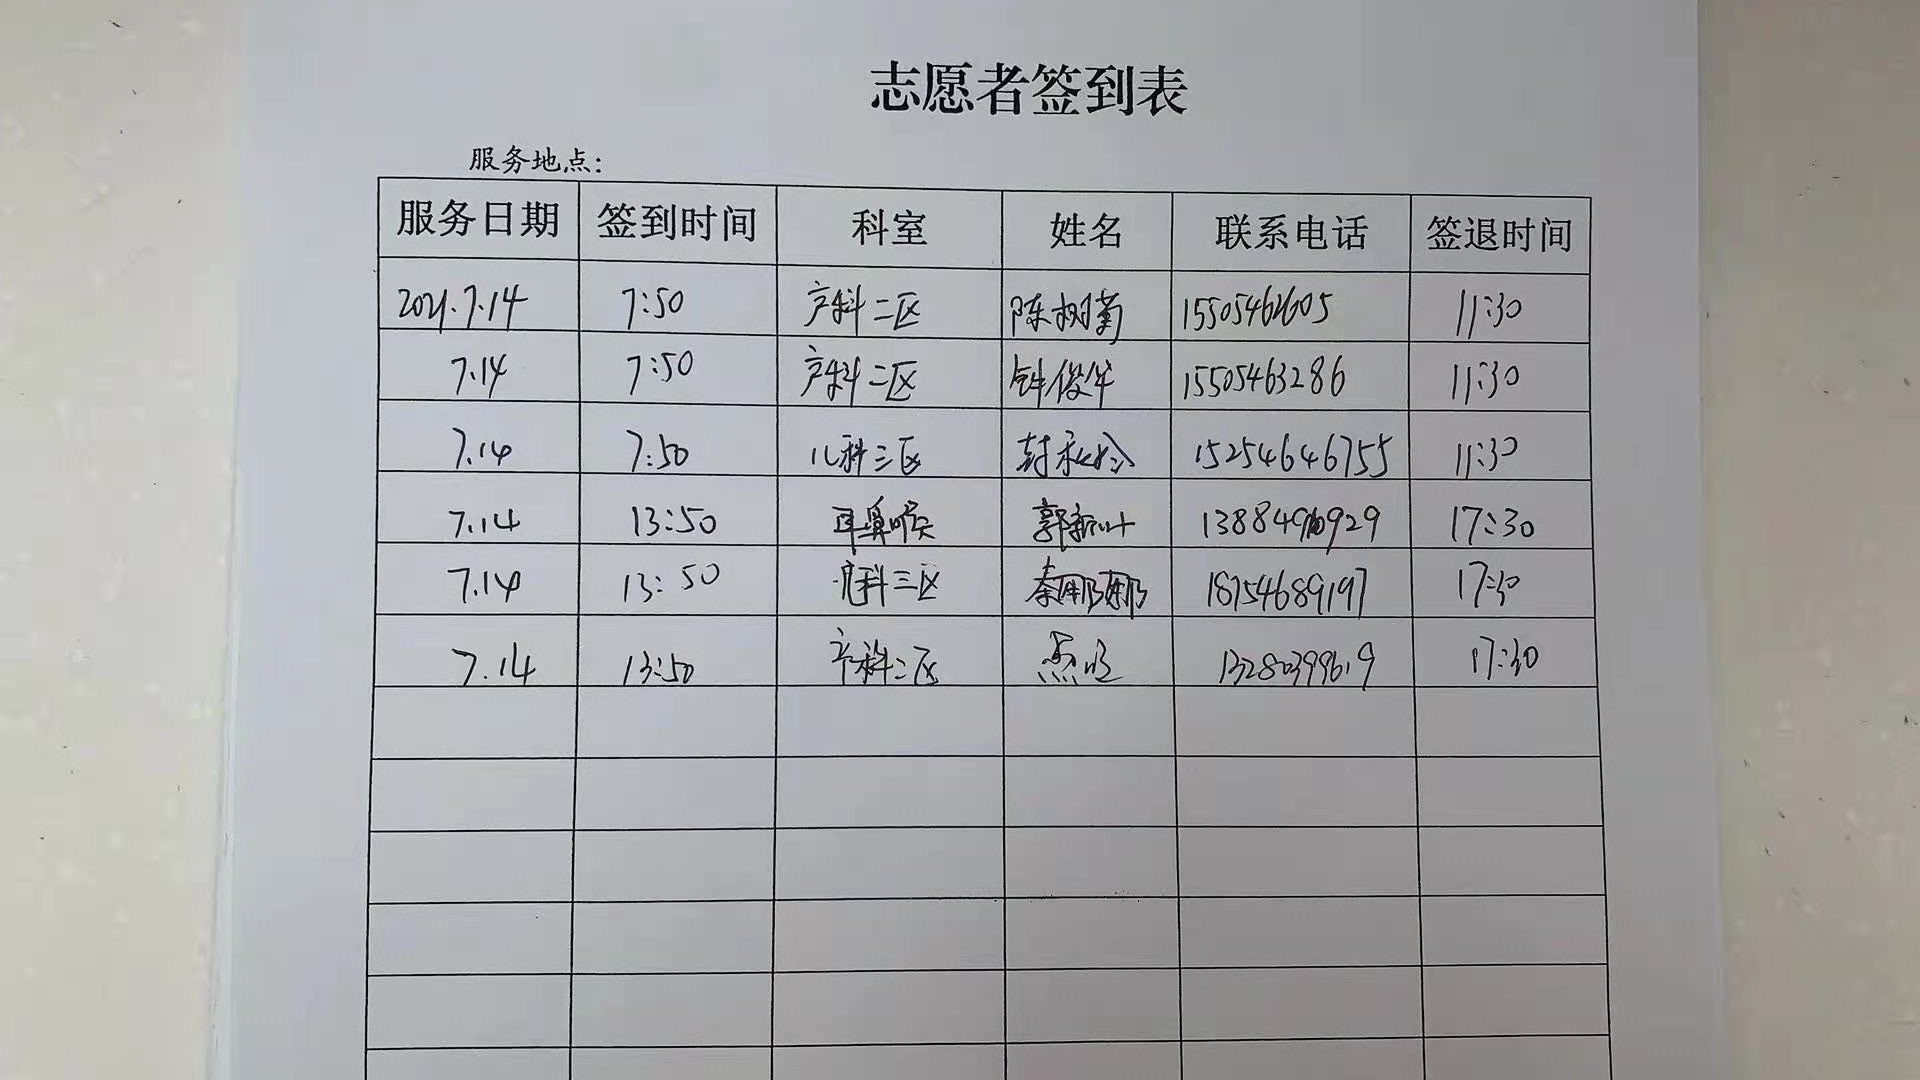 志愿者签到表
服务地点:
服务日期 签到时间 科室 姓名 联系电话 签退时间
2021.7.14 7:50 产科二区 陈树菊 15505462605 11:30
7.14 7:50 产科二区 钟俊华 15505463286 11:30
7.14 7:50 儿科三区 封秋玲 15254646755 11:30
7.14 13:50 耳鼻喉 郭新叶 17:30
7.14 13:50 产科三区 秦娜娜 18754689197 17:30
7.14 13:50 产科二区 13280399619 17:30